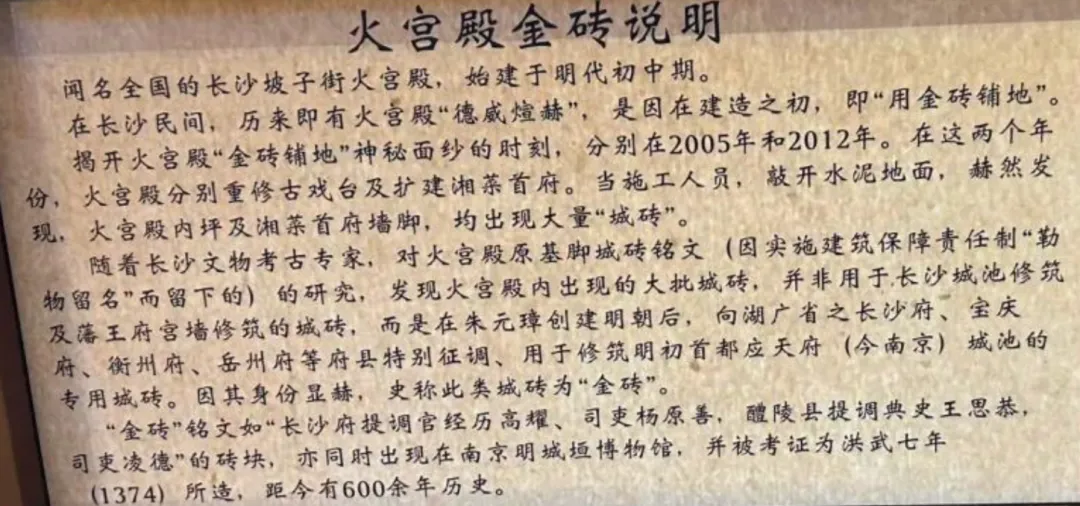 火宫殿金砖说明
闻名全国的长沙坡子街火宫殿，始建于明代初中期。
在长沙民间，历来即有火宫殿“德威煊赫”，是因在建造之初，即“用金砖铺地”。
揭开火宫殿“金砖铺地”神秘面纱的时刻，分别在2005年和2012年。在这两个年
份，火宫殿分别重修古戏台及扩建湘菜首府。当施工人员，敲开水泥地面，赫然发
现，火宫殿内坪及湘菜首府墙脚，均出现大量“城砖”。
随着长沙文物考古专家，对火宫殿原基脚城砖铭文（因实施建筑保障责任制“勒
物留名”而留下的）的研究，发现火宫殿内出现的大批城砖，并非用于长沙城池修筑
及藩王府宫墙修筑的城砖，而是在朱元璋创建明朝后，向湖广省之长沙府、宝庆
府、衡州府、岳州府等府县特别征调、用于修筑明初首都应天府（今南京）城池的
专用城砖。因其身份显赫，史称此类城砖为“金砖”。
“金砖”铭文如“长沙府提调官经历高耀、司吏杨原善，醴陵县提调典史王思恭，
司吏凌德”的砖块，亦同时出现在南京明城垣博物馆，并被考证为洪武七年
（1374）所造，距今有600余年历史。